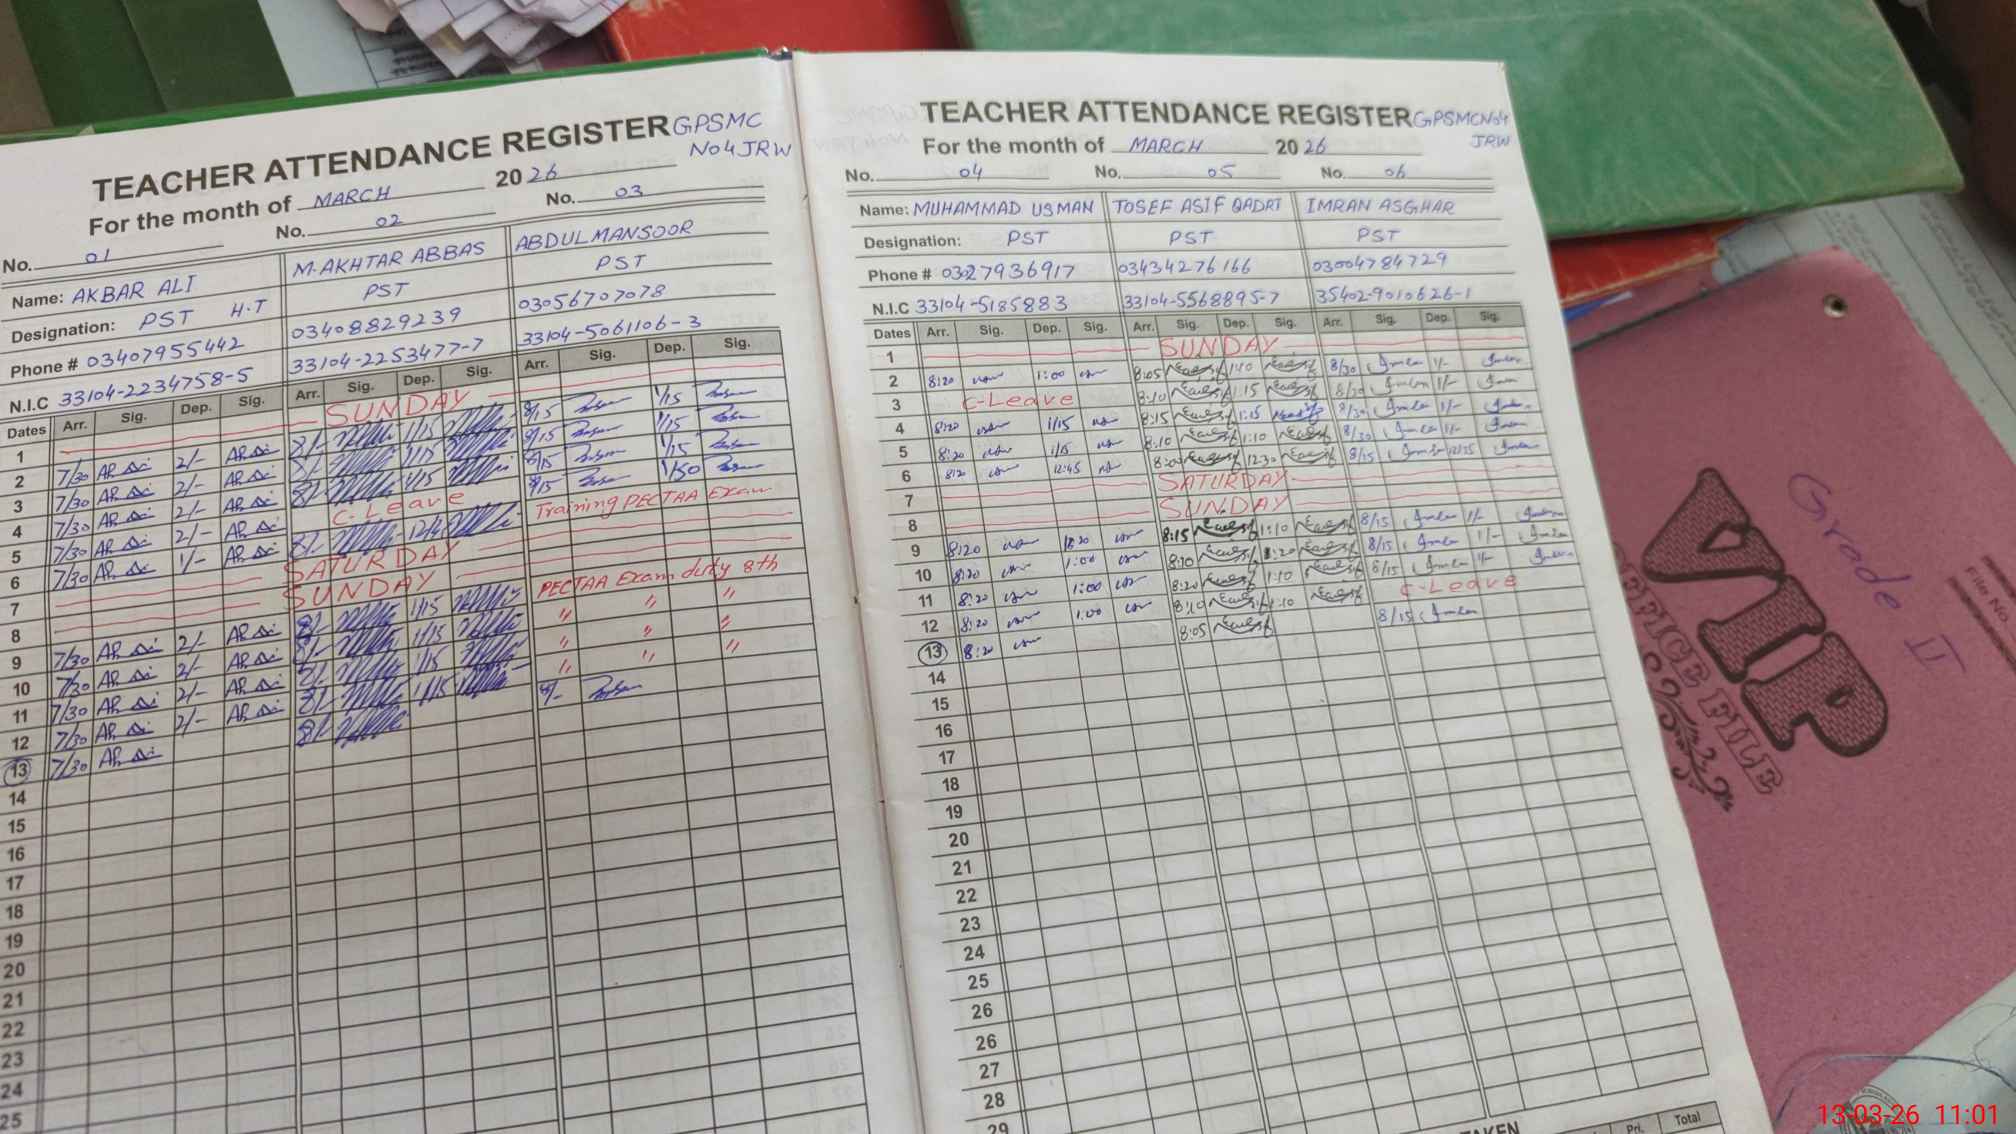 TEACHER ATTENDANCE REGISTER GPSMC
No4 JRW
For the month of MARCH 2026
No. 01 No. 02 No. 03
Name: AKBAR ALI M. AKHTAR ABBAS ABDUL MANSOOR
Designation: PST H.T PST PST
Phone # 03407955442 03408829239 03056707078
N.I.C 33104-2234758-5 33104-2253477-7 33104-5061106-3
Dates Arr. Sig. Dep. Sig. Arr. Sig. Dep. Sig. Arr. Sig. Dep. Sig.
1 SUNDAY
2 7/30 2/- 8/- 1/15 8/15 1/15
3 7/30 2/- 8/- 1/15 8/15 1/15
4 7/30 2/- 8/- 1/15 8/15 1/15
5 7/30 2/- C-Leave 8/15 1/50
6 7/30 1/- 8/- Training PECTAA Exam
7 SATURDAY
8 SUNDAY
9 7/30 2/- 8/- 1/15 PECTAA Exam duty 8th
10 7/30 2/- 8/- 1/15 " " "
11 7/30 2/- 8/- 1/15 " " "
12 7/30 2/- 8/- 1/15 " " "
13 7/30 8/-
14
15
16
17
18
19
20
21
22
23
24
25
TEACHER ATTENDANCE REGISTER GPSMCNo4
JRW
For the month of MARCH 2026
No. 04 No. 05 No. 06
Name: MUHAMMAD USMAN TOSEF ASIF QADRI IMRAN ASGHAR
Designation: PST PST PST
Phone # 03027936917 03434276166 03004784729
N.I.C 33104-5185883 33104-5568895-7 35402-9010626-1
Dates Arr. Sig. Dep. Sig. Arr. Sig. Dep. Sig. Arr. Sig. Dep. Sig.
1 SUNDAY
2 8:20 1:00 8:05 1:10 8/30 1/-
3 C-Leave 8:10 1:15 8/30 1/-
4 8:20 1/15 8:15 1:15 8/30 1/-
5 8:20 1/15 8:10 1:10 8/30 1/-
6 8:20 12:45 8:00 12:30 8/15
7 SATURDAY
8 SUNDAY
9 8:20 8:15 1:10 8/15 1/-
10 8:20 1:00 8:10 1:20 8/15 1/-
11 8:20 1:00 8:20 1:10 8/15 1/-
12 8:20 1:00 8:10 1:10 C-Leave
13 8:20 8:05 8/15
14
15
16
17
18
19
20
21
22
23
24
25
26
26
27
28
29
TAKEN Pri. Total
Grade II
VIP
OFFICE FILE
File No
13-03-26 11:01